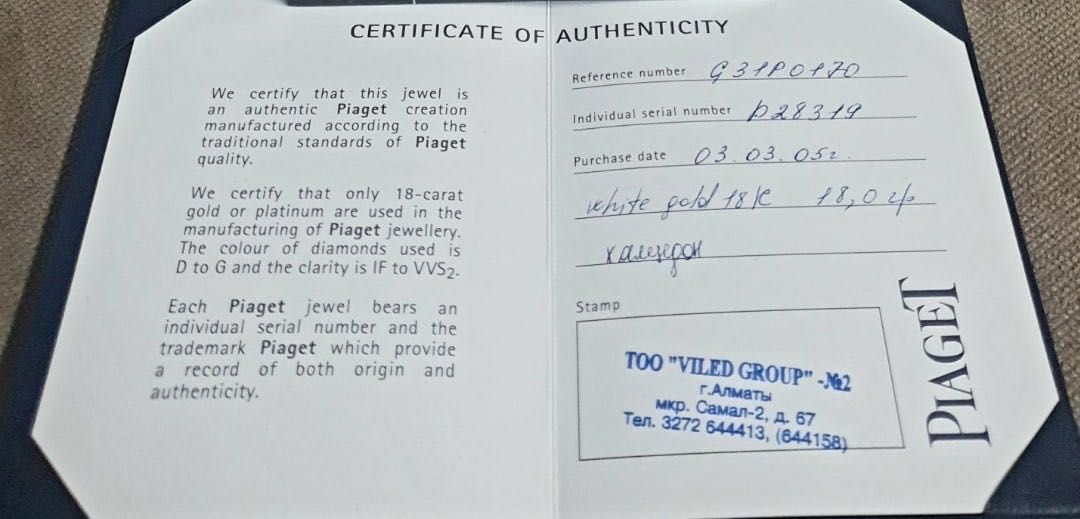 CERTIFICATE OF AUTHENTICITY
We certify that this jewel is
an authentic Piaget creation
manufactured according to the
traditional standards of Piaget
quality.
We certify that only 18-carat
gold or platinum are used in the
manufacturing of Piaget jewellery.
The colour of diamonds used is
D to G and the clarity is IF to VVS2.
Each Piaget jewel bears an
individual serial number and the
trademark Piaget which provide
a record of both origin and
authenticity.
Reference number G31P0170
Individual serial number D28319
Purchase date 03.03.05г.
white gold 18K 18,0 гр
халцедон
Stamp
ТОО "VILED GROUP" -№2
г.Алматы
мкр. Самал-2, д. 67
Тел. 3272 644413, (644158)
PIAGET